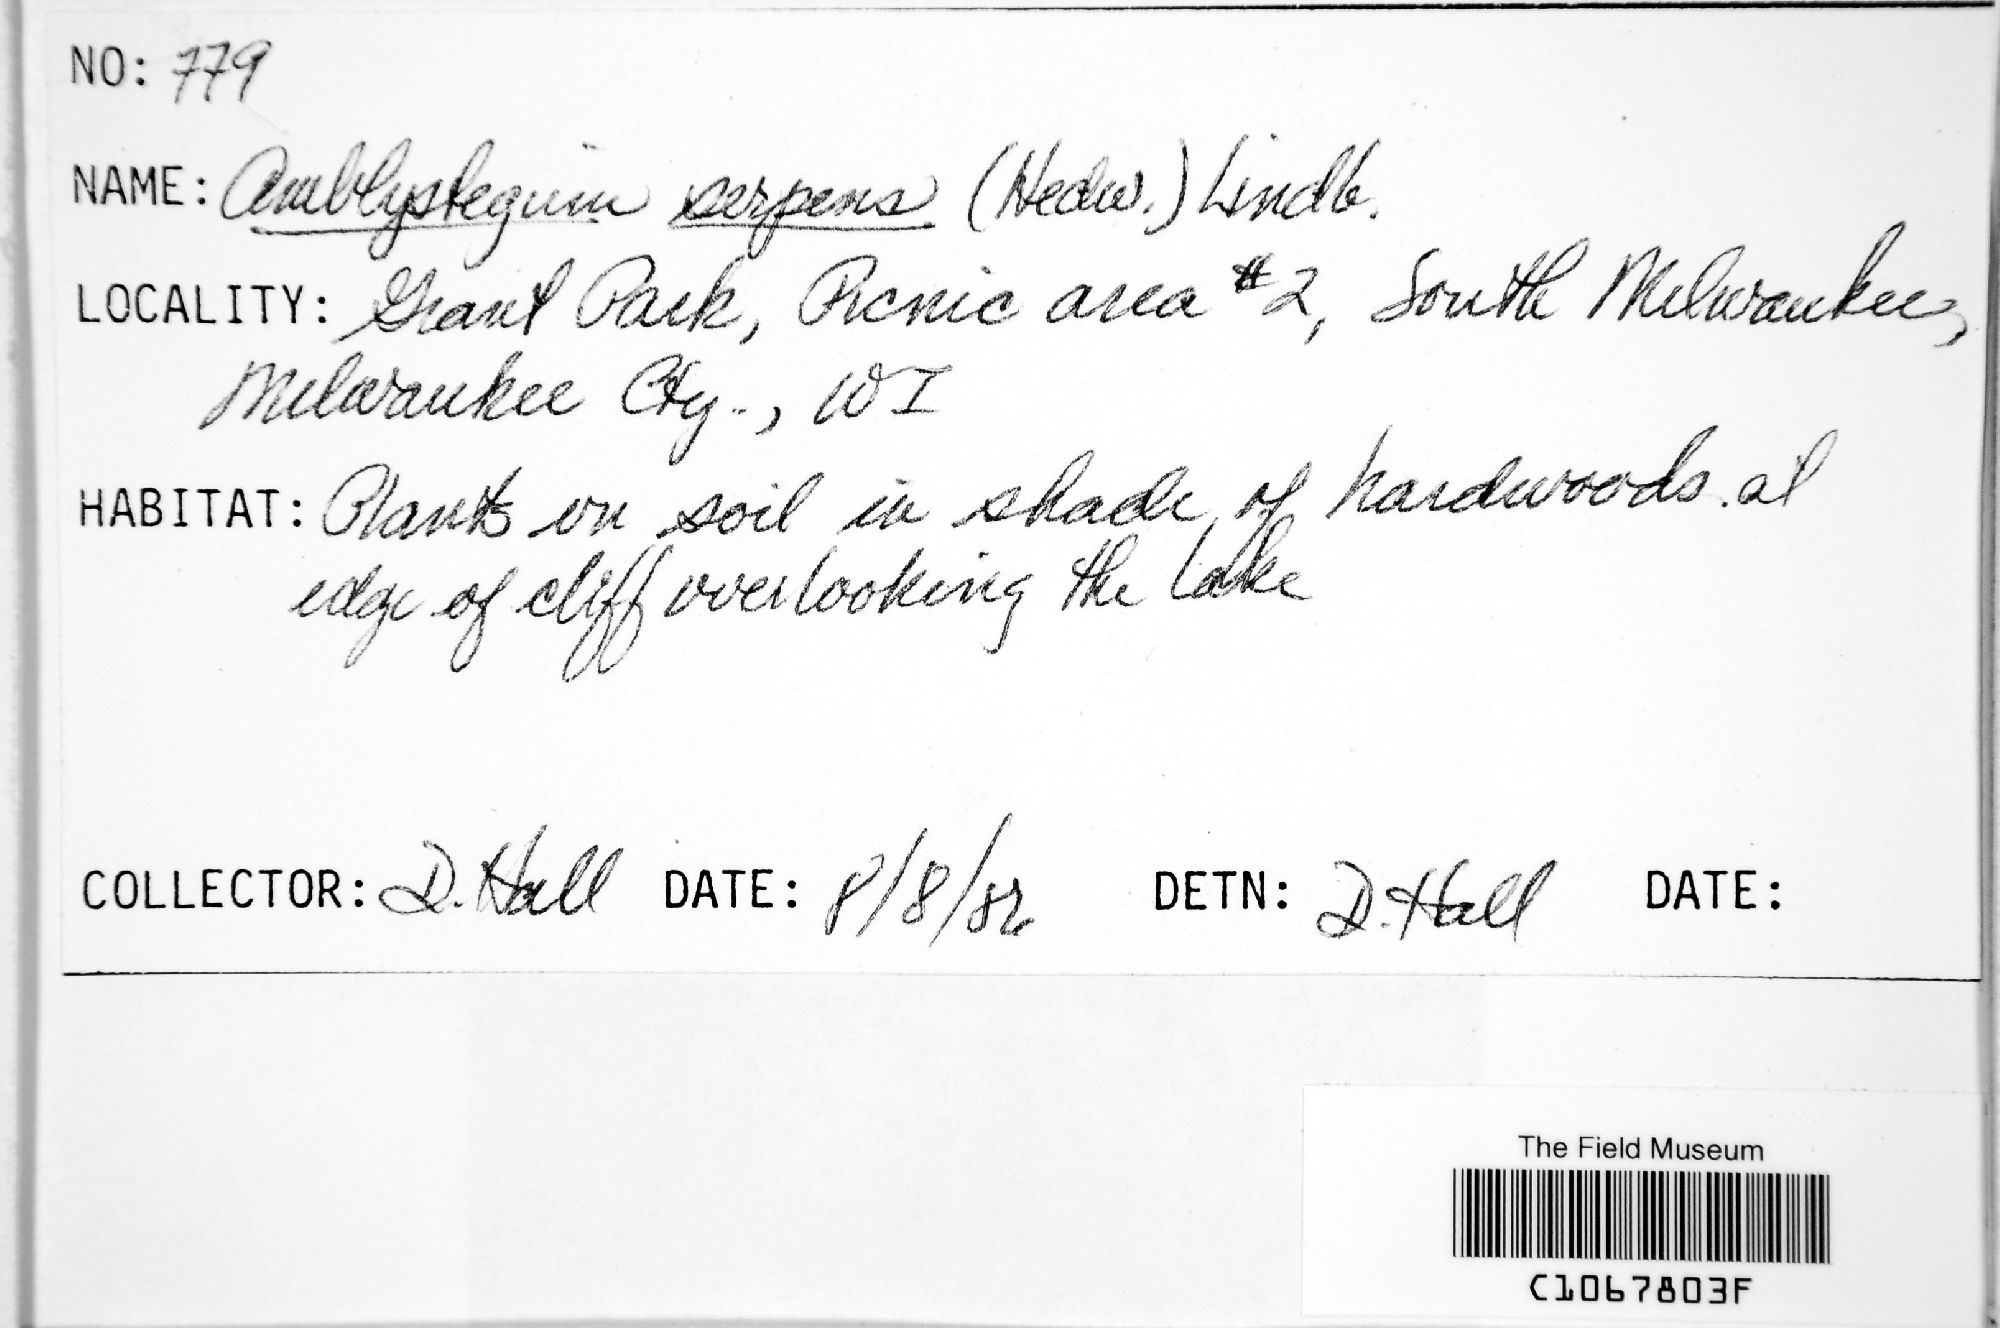 NO: 779
NAME: Amblystegium serpens (Hedw.) Lindb.
LOCALITY: Grant Park, Picnic area #2, South Milwaukee,
Milwaukee Cty., WI
HABITAT: Plants on soil in shade of hardwoods at
edge of cliff overlooking the lake
COLLECTOR: D. Hall DATE: 8/8/82 DETN: D. Hall DATE:
The Field Museum
C1067803F